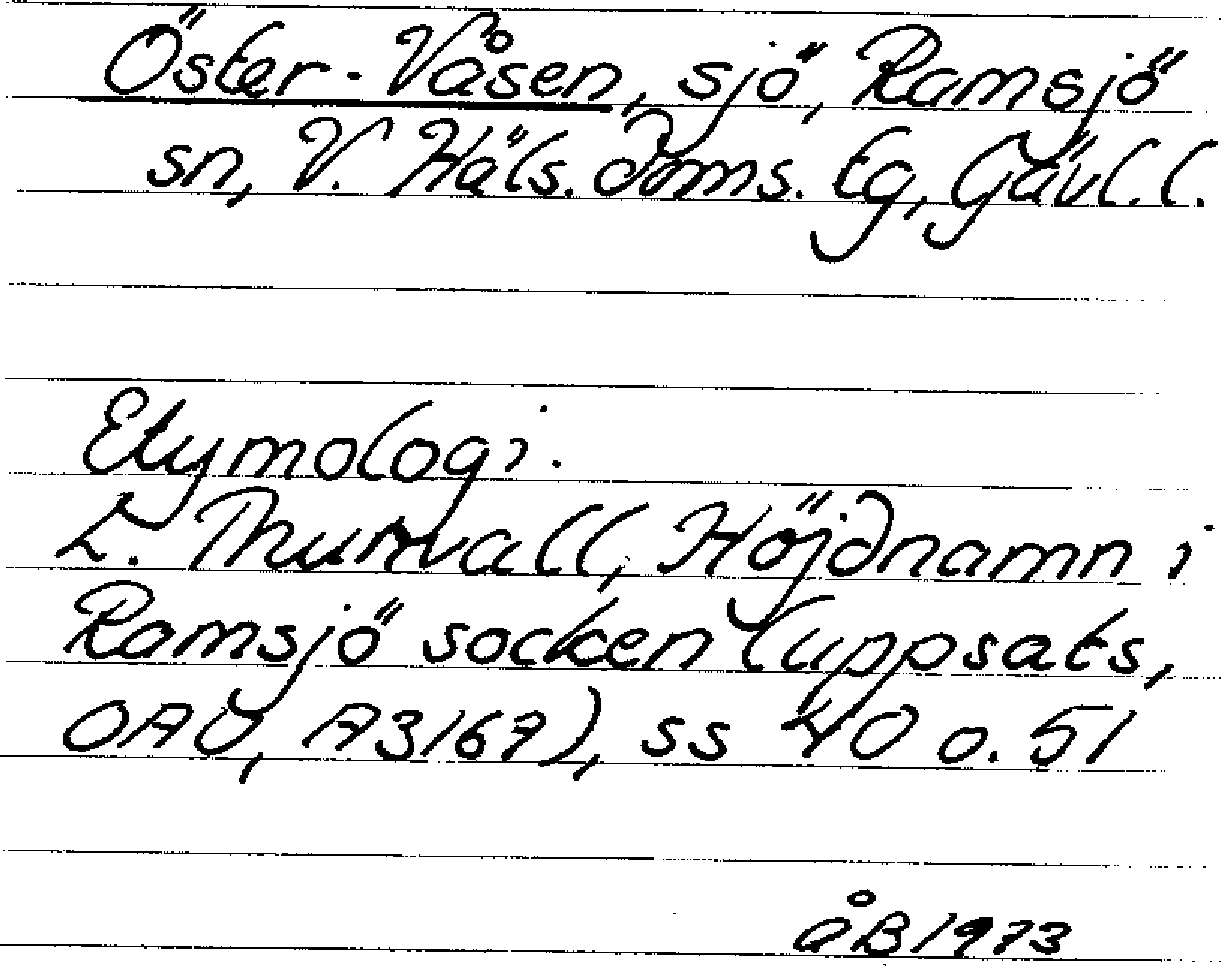 Öster-Våsen, sjö, Ramsjö
sn, V. Häls. doms. tg, Gävl. l.
Etymologi.
L. Thunvall, Höjdnamn i
Ramsjö socken (uppsats,
OAU, A3167), ss 40 o. 51
ÅB 1973